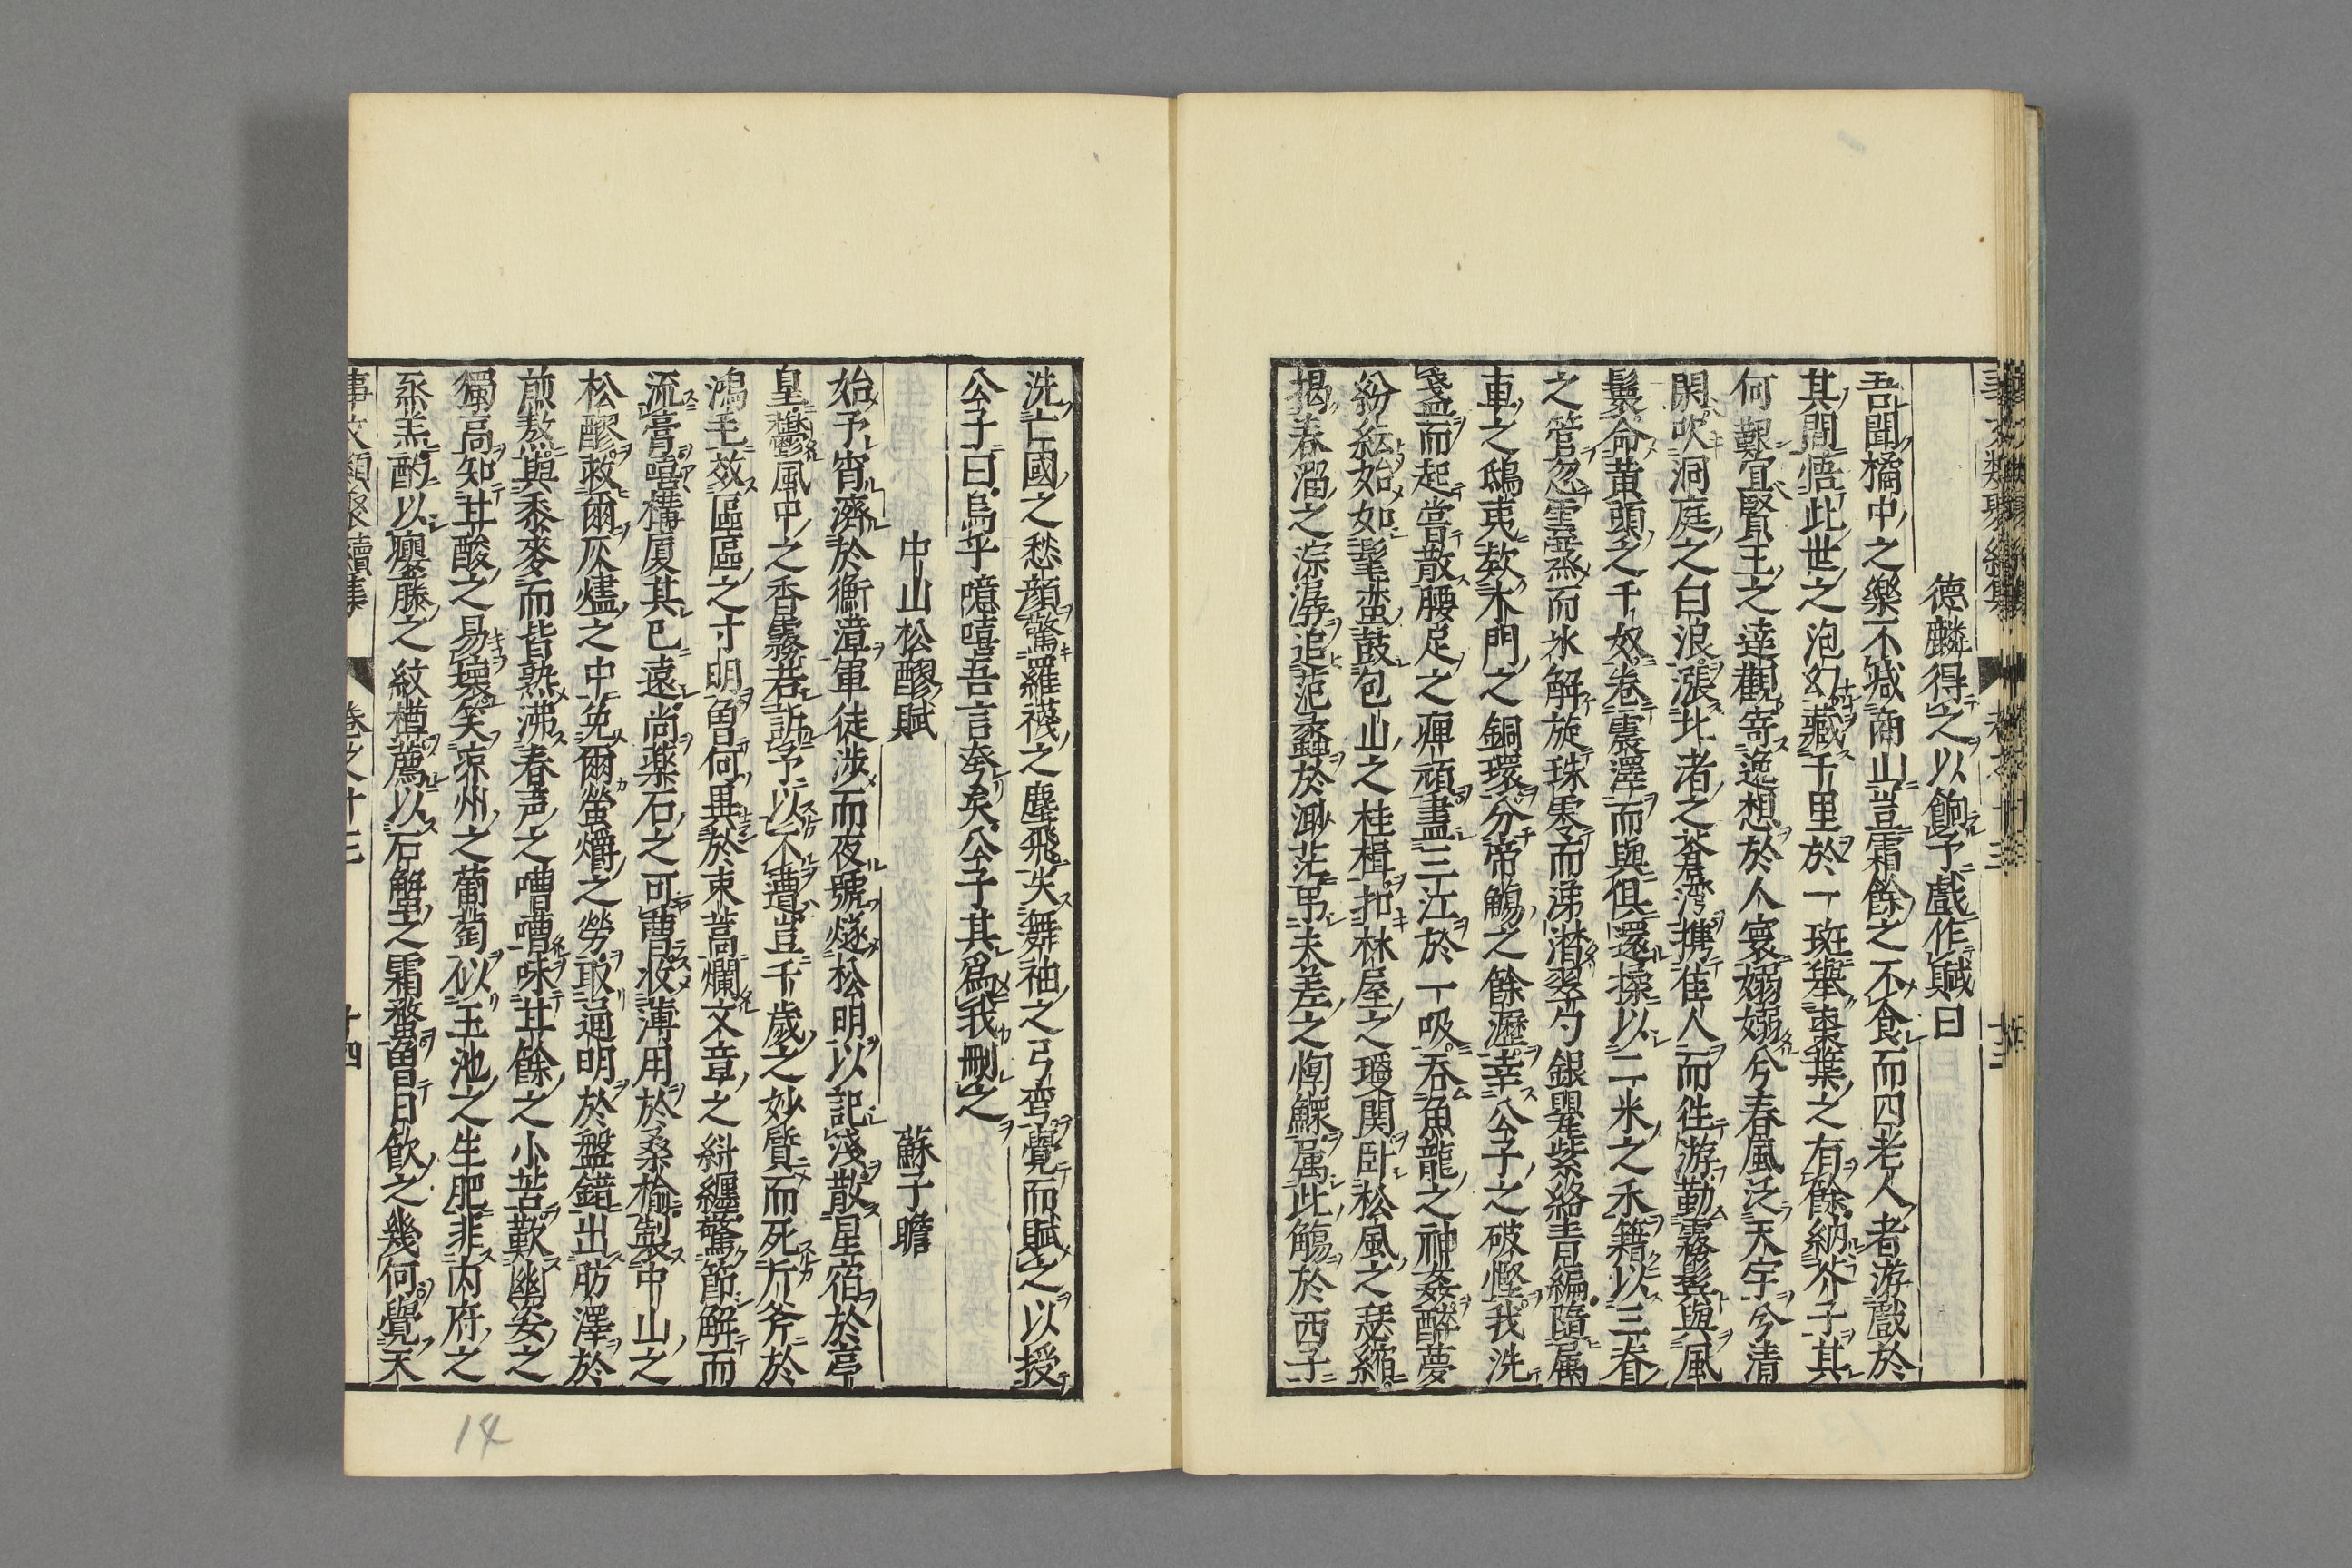 德麟得之以餉予戲作賦曰
吾聞橘中之樂不减商山豈霜餘之不食而四老人者游戲於
其間悟此世之泡幻藏千里於一斑舉棗葉之有餘納芥子其
何艱宜賢王之達觀寄逸想於人寰嫋嫋兮春風泛天宇兮清
閑吹洞庭之白浪漲北渚之蒼灣携佳人而徃游勤霧鬢與風
鬟命黄頭之千奴卷震澤而與俱還揉以二米之禾籍以三脊
之菅忽雲烝而氷解旋珠零而涕潸翠勺銀罌紫絡青編隨属
車之鴟夷欵木門之銅環分帝觴之餘瀝幸公子之破慳我洗
盞而起嘗散腰足之痺頑盡三江於一吸吞魚龍之神姦醉夢
紛紜始如髦蛮鼓包山之桂楫扣林屋之瓊関卧松風之瑟縮
揭春溜之淙潺追范蠡於渺茫吊夫差之惸鰥属此觴於西子
洗亡國之愁顔驚羅襪之塵飛失舞袖之弓弯覺而賦之以授
公子曰烏乎噫嘻吾言夸矣公子其爲我刪之
中山松醪賦　蘇子瞻
始予宵濟於衡漳軍徒涉而夜號燧松明以記淺散星宿於亭
皇鬱風中之香霧若訴予以不遭豈千歲之妙質而死斤斧於
鴻毛效區區之寸明曽何異於束蒿爛文章之糾纆驚節解而
流膏嘻構厦其已遠尚藥石之可曹收薄用於桑榆製中山之
松醪救爾灰燼之中免爾螢爝之勞取通明於盤錯出肪澤於
煎熬與黍麥而皆熟沸春声之嘈嘈味甘餘之小苦歎幽姿之
獨高知甘酸之易壊笑凉州之葡萄似玉池之生肥非内府之
烝羔酌以癭藤之紋樽薦以石蟹之霜螯曽日飲之幾何覺天
事文類聚續集　卷之十三　十四